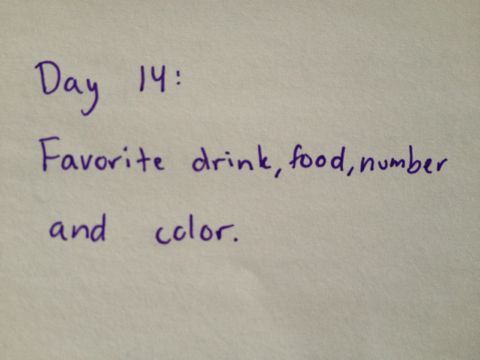 Day 14:
Favorite drink, food, number
and color.